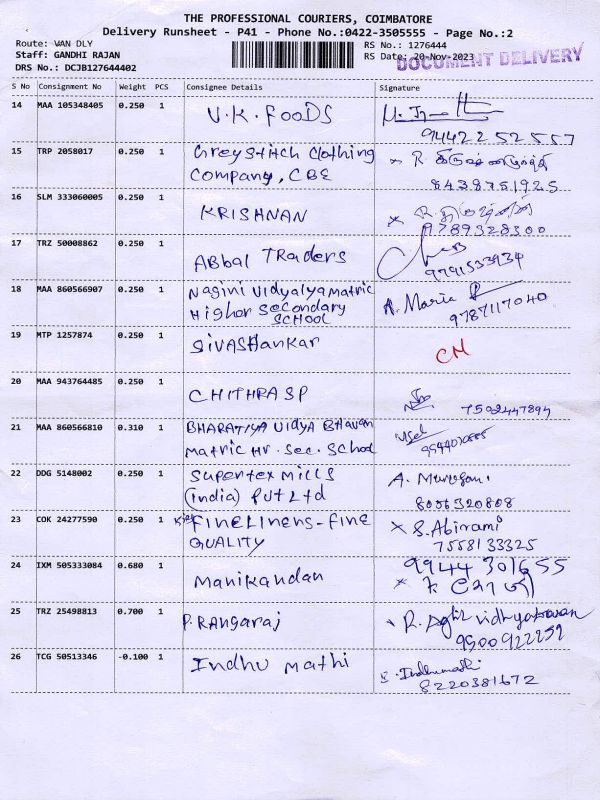 THE PROFESSIONAL COURIERS, COIMBATORE
Delivery Runsheet - P41 - Phone No.:0422-3505555 - Page No.:2
Route: VAN DLY
RS No.: 1276444
Staff: GANDHI RAJAN
RS Date: 20-Nov-2023
DOCUMENT DELIVERY
DRS No.: DCJB127644402
S No Consignment No Weight PCS Consignee Details Signature
14 MAA 105348405 0.250 1 V.K. FOODS
94422 52557
15 TRP 2058017 0.250 1 Greystitch Clothing
Company, CBE
8438751925
16 SLM 333060005 0.250 1 KRISHNAN
9789328300
17 TRZ 50008862 0.250 1 ABbal Traders
9791533934
18 MAA 860566907 0.250 1 Nagini Vidyalya matric
Higher Secondary
SCHOOL
A. Maria
9787117040
19 MTP 1257874 0.250 1 SIVASHankar
20 MAA 943764485 0.250 1 CHITHRA SP
7502447894
21 MAA 860566810 0.310 1 BHARATIYA Vidya BHavan
matric Hr. Sec. School
22 DDG 5148002 0.250 1 Supertex Mills
(India) Pvt Ltd
A. Murugan
8056320808
23 COK 24277590 0.250 1 FINELINENS-FINE
QUALITY
X S. Abirami
7558133325
24 IXM 505333084 0.680 1 Manikandan
9944 301655
25 TRZ 25498813 0.700 1 P. RANGaraj
9500922252
26 TCG 50513346 -0.100 1 Indhu mathi
S. Indhumathi
8220381672